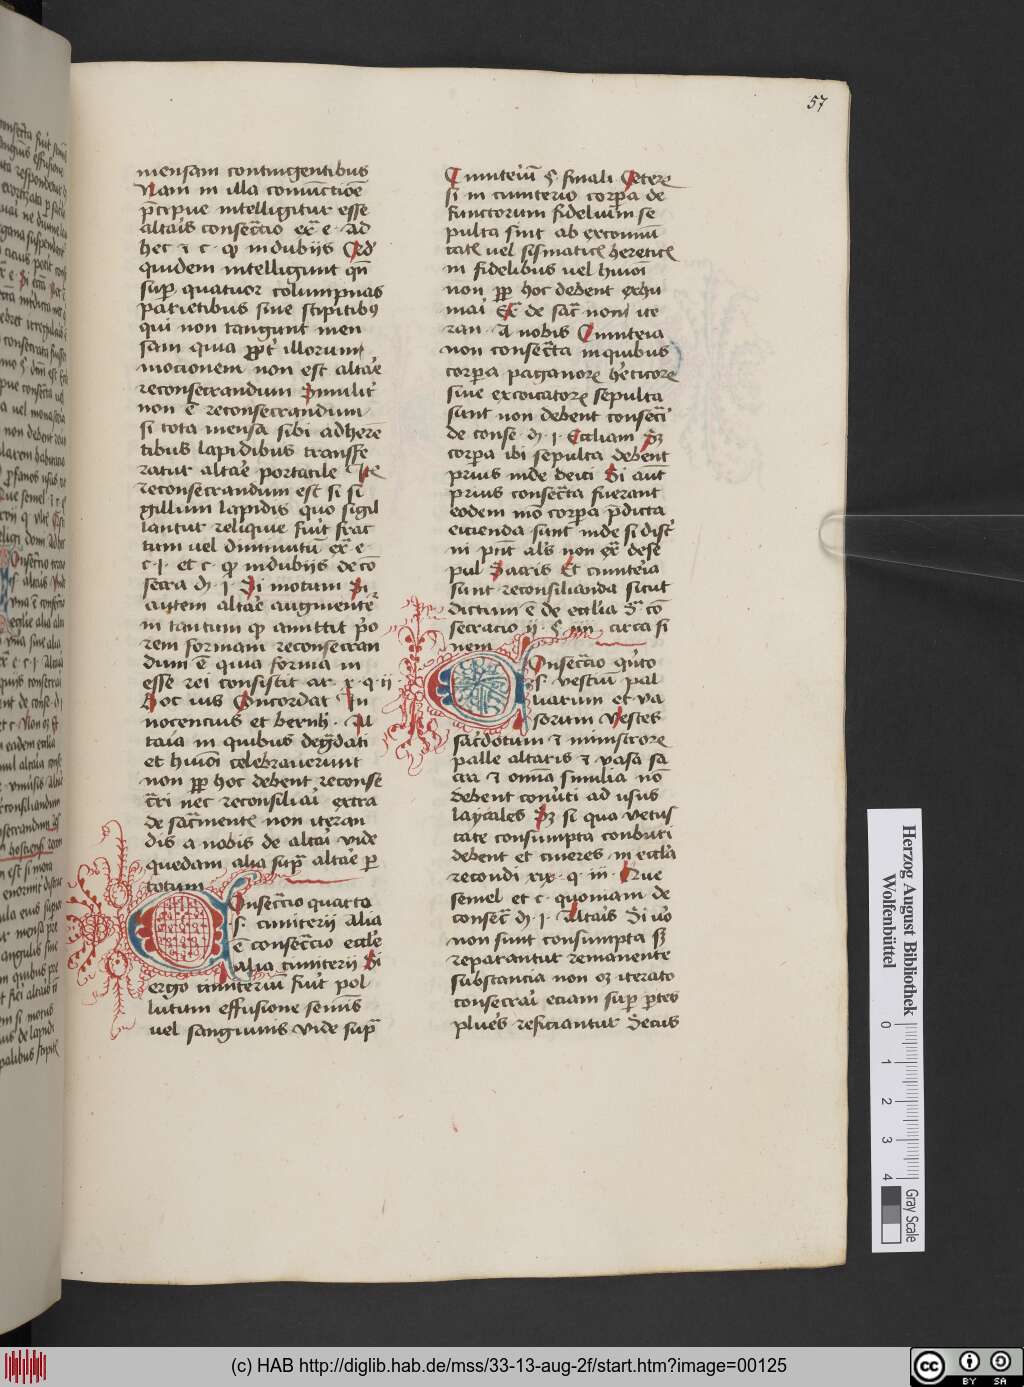 57
mensam contingentibus
Nam in illa coniūctiōe
p̄cipue intelligitur esse
altaīs consecc̄io ex̄ e · ad
hec ⁊ c · ꝙ in dubijs Sed
quidem intelligunt qn̄
sup̲ quatuor columpnas
parietibus siue stipitibꝯ
qui non tangunt men
sam quia ꝓpt̄ illorum
mocionem non est altar̄e
reconsecrandum Similit̄
non ē reconsecrandum
si tota mensa sibi adhere
tibus lapidibus transfe
ratur altar̄e portatile Itē
reconsecrandum est si si
gillum lapidis quo sigil
lantur reliquie fuīt frac
tum uel diminutū ex̄ · e ·
c · j · et c · ꝙ in dubijs de cō
secra di · j · Si motum Si
autem altar̄e augmentet̄
in tantum ꝙ amittit p̄o
rem formam reconsecran
dum ē quia forma in
esse rei consistit ar · x · q · ij
Hoc ius Concordat In
nocencius et bernh̄ · Al
taīa in quibus deg̲dati
et huiōi celebrauerunt
non ꝓp hoc debent reconse
cr̄i nec reconsiliaī extra
de sacr̄mentē non iteran
dis a nobis de altaī vide
quedam alia sup̄ altar̄e p̲
totum
Consecc̄io quarta
s · cimiterij Alia
ē consecc̄io eccl̄e
alia cimiterij Si
ergo cimiteriū fuīt pol
lutum effusione semīs
uel sanguinis vide sup̄
Cimiteriū § · finali Ceterꝝ
si in cimiterio corp̲a de
functorum fidelium se
pulta sint ab excomūi
catꝭ uel sismaticꝭ hereticꝭ
infidelibus uel huiōi
non ꝓp hoc debent exhu
maī Ex̄ de sacr̄ non ite
ran · a nobis Cimiteria
non consecr̄ta in quibus
corp̲a paganorꝝ h̄eticorꝝ
siue excoīcatorꝝ sepulta
sunt non debent consecr̄i
de conse · di · j · Eccl̄iam Sꝫ
corp̲a ibi sepulta debent
prius inde deici Si aut̄
prius consecr̄ta fuerant
eodem mō corp̲a p̄dicta
eicienda sunt inde si disc̄
ni pn̄t al̄s non ex̄ de se
pul Sacris Et cimiteria
sunt reconsilianda sicut
dictum ē de eccl̄ia S̄ cō
secracio ij · § · iiij · circa fi
nem
Consecc̄io qūto
s · vestiū pal
liarum et va
sorum Vestes
sac̄dotum ⁊ ministrorꝝ
palle altaris ⁊ vasa sa
cra ⁊ omīa similia nō
debent con̄uti ad usus
laycales Sꝫ si qua vetus
tate consumpta conburi
debent et cineres in eccl̄a
recondi xix · q · iij · Que
semel et c · quoniam de
consecr̄ di · j · Altaīs Si ūo
non sunt consumpta sꝫ
reparantur remanente
substancia non oꝫ iterato
consecraī eciam sup̲ p̲tes
plūes reficiantur Secus
Herzog August Bibliothek
Wolfenbüttel
0
1
2
3
4
Gray Scale
(c) HAB http://diglib.hab.de/mss/33-13-aug-2f/start.htm?image=00125
cc
BY SA